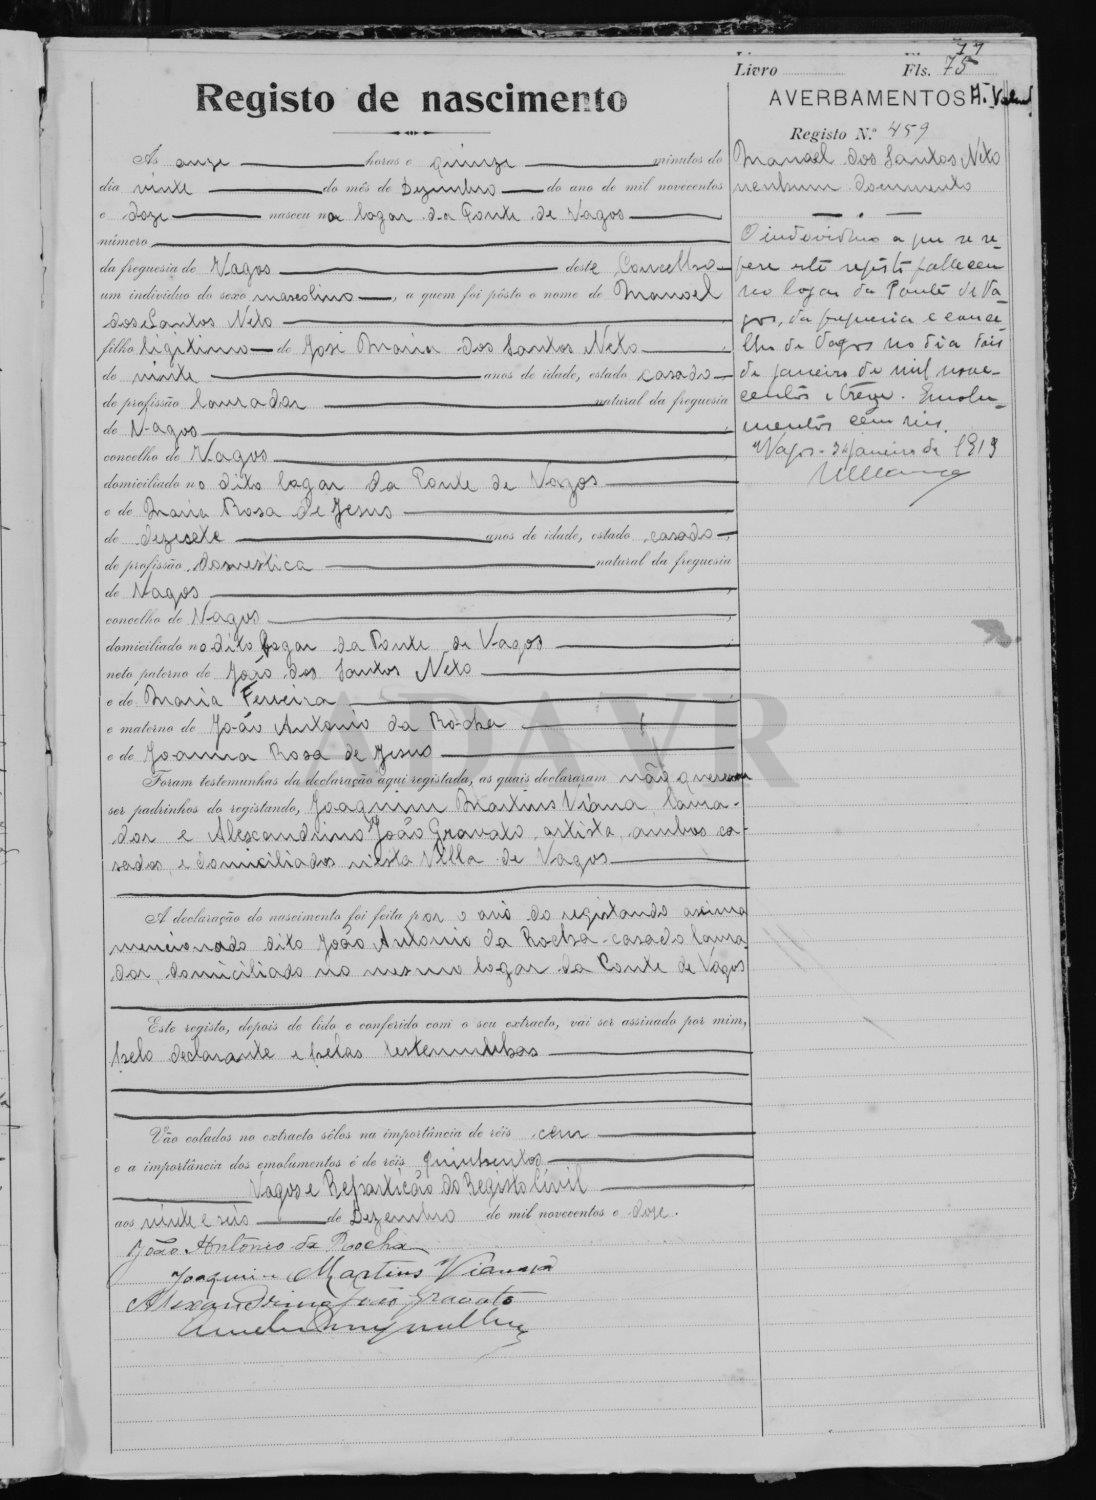 77
Livro Fls. 75
Registo de nascimento
AVERBAMENTOS
Registo N.º 459
Manoel dos Santos Neto
nenhum documento
O individuo a que se re-
fere este registo falleceu
no logar da Ponte de Va-
gos, da freguesia e conce-
lho de Vagos no dia dois
de janeiro de mil nove-
centos e treze. Emolu-
mentos cem reis.
Vagos - 3 Janeiro de 1913
Às onze horas e quinze minutos do
dia vinte do mês de Dezembro do ano de mil novecentos
e doze nasceu no logar da Ponte de Vagos
número
da freguesia de Vagos deste Concelho
um indivíduo do sexo masculino, a quem foi pôsto o nome de Manoel
dos Santos Neto
filho ligitimo de José Maria dos Santos Neto
de vinte anos de idade, estado casado
de profissão lavrador natural da freguesia
de Vagos
concelho de Vagos
domiciliado no dito logar da Ponte de Vagos
e de Maria Rosa de Jesus
de dezesete anos de idade, estado casada
de profissão domestica natural da freguesia
de Vagos
concelho de Vagos
domiciliado no dito logar da Ponte de Vagos
neto paterno de João dos Santos Neto
e de Maria Ferreira
e materno de João Antonio da Rocha
e de Joanna Rosa de Jesus
Foram testemunhas da declaração aqui registada, as quais declararam não quererem
ser padrinhos do registando, Joaquim Martins Viana lavra-
dor e Alexandrino João Gravato, artista, ambos ca-
sados, e domiciliados nesta Villa de Vagos
A declaração do nascimento foi feita por o avô do registando acima
mencionado dito João Antonio da Rocha - casado lavra-
dor, domiciliado no mesmo logar da Ponte de Vagos
Este registo, depois de lido e conferido com o seu extracto, vai ser assinado por mim,
pelo declarante e pelas testemunhas
Vão colados no extracto sêlos na importância de réis cem
e a importância dos emolumentos é de réis quinhentos
Vagos e Repartição do Registo Civil
aos vinte e seis de Dezembro de mil novecentos e doze.
João António da Rocha
Joaquim Martins Vianna
Alexandrino João Gravato
ADAVR